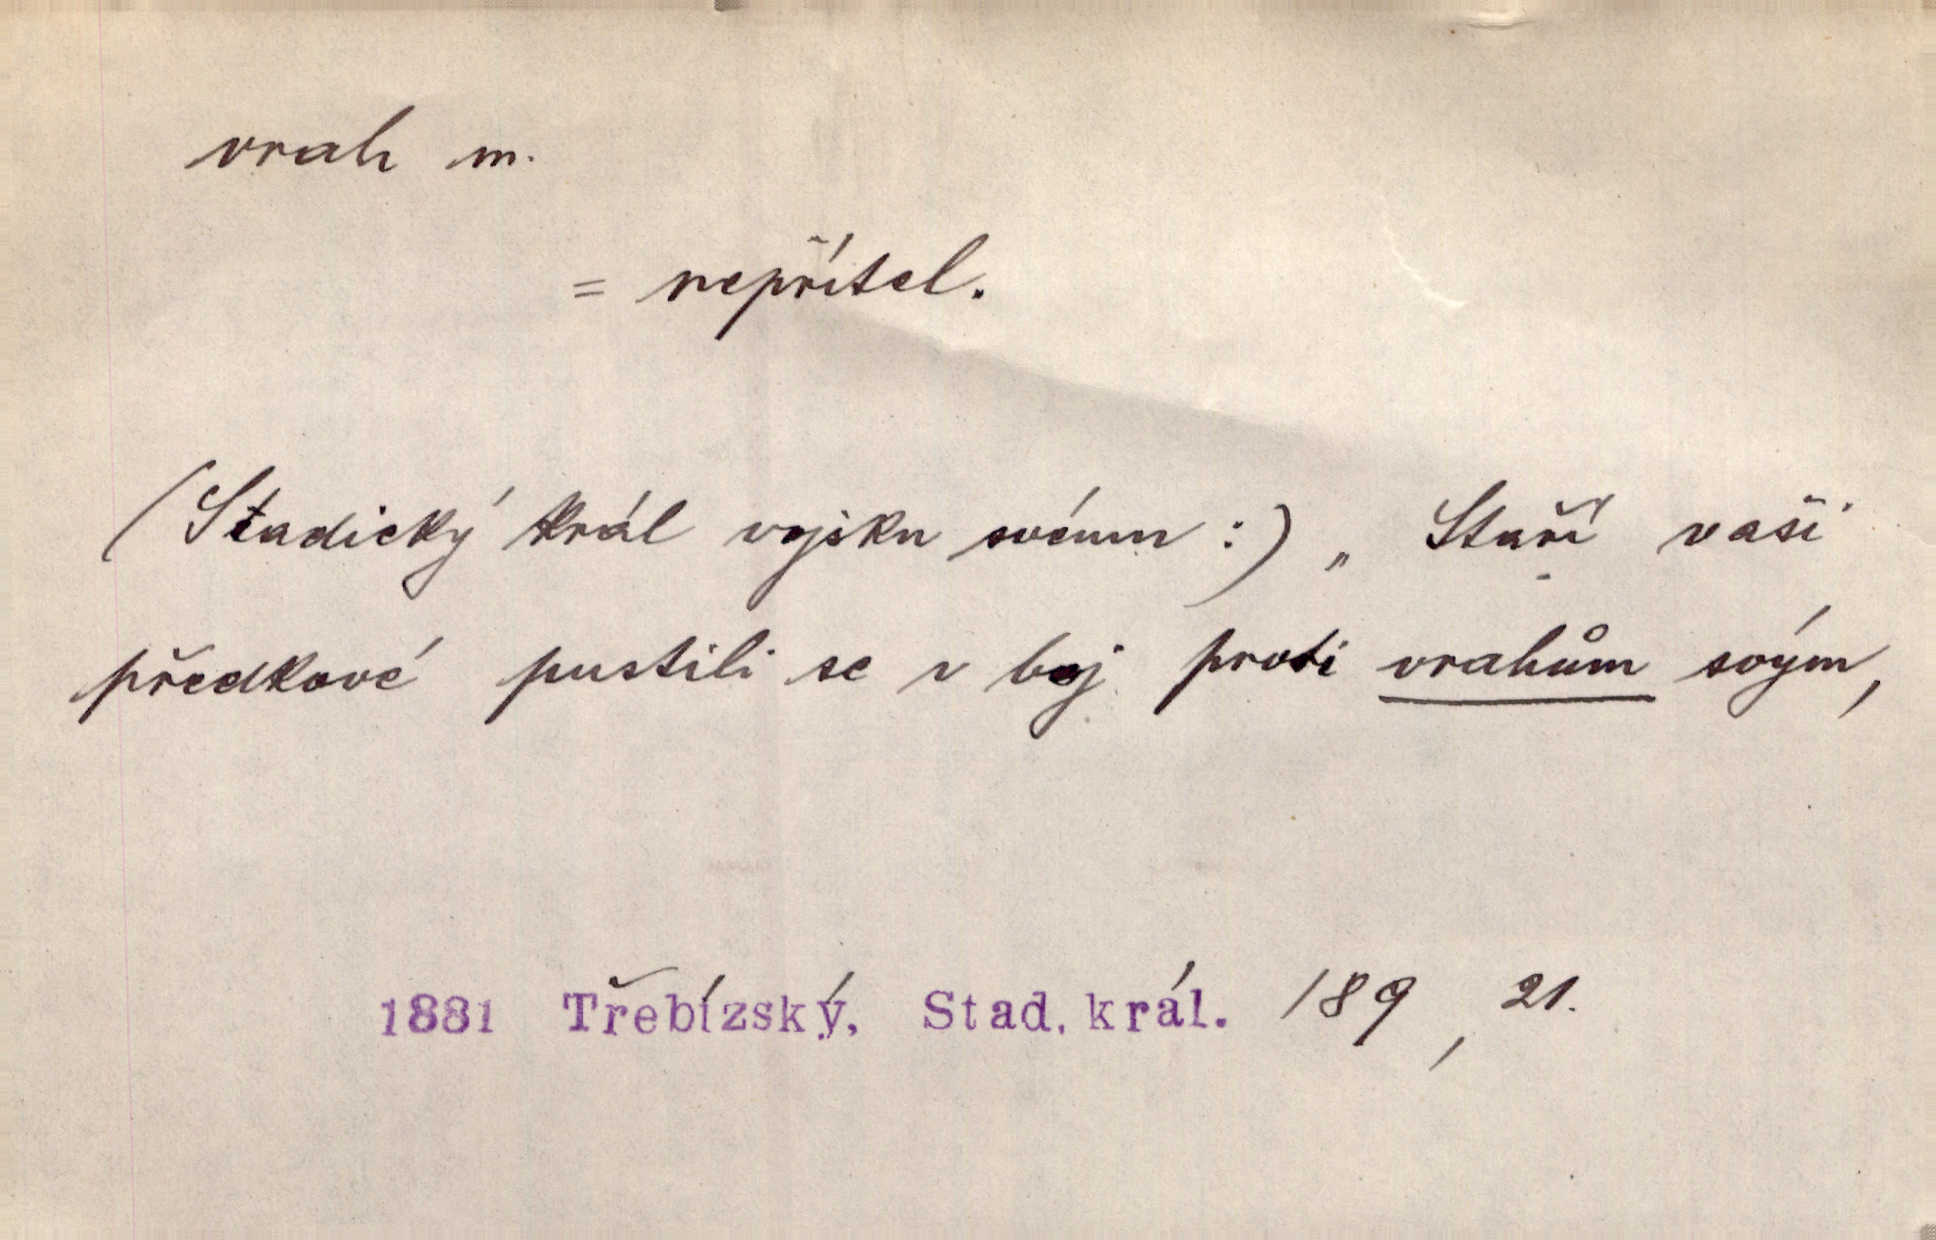 vrah m.
= nepřítel.
(Stadický král vojsku svému:) „Staří vaši
předkové pustili se v boj proti vrahům svým,
1881 Třebízský, Stad. král. 189, 21.